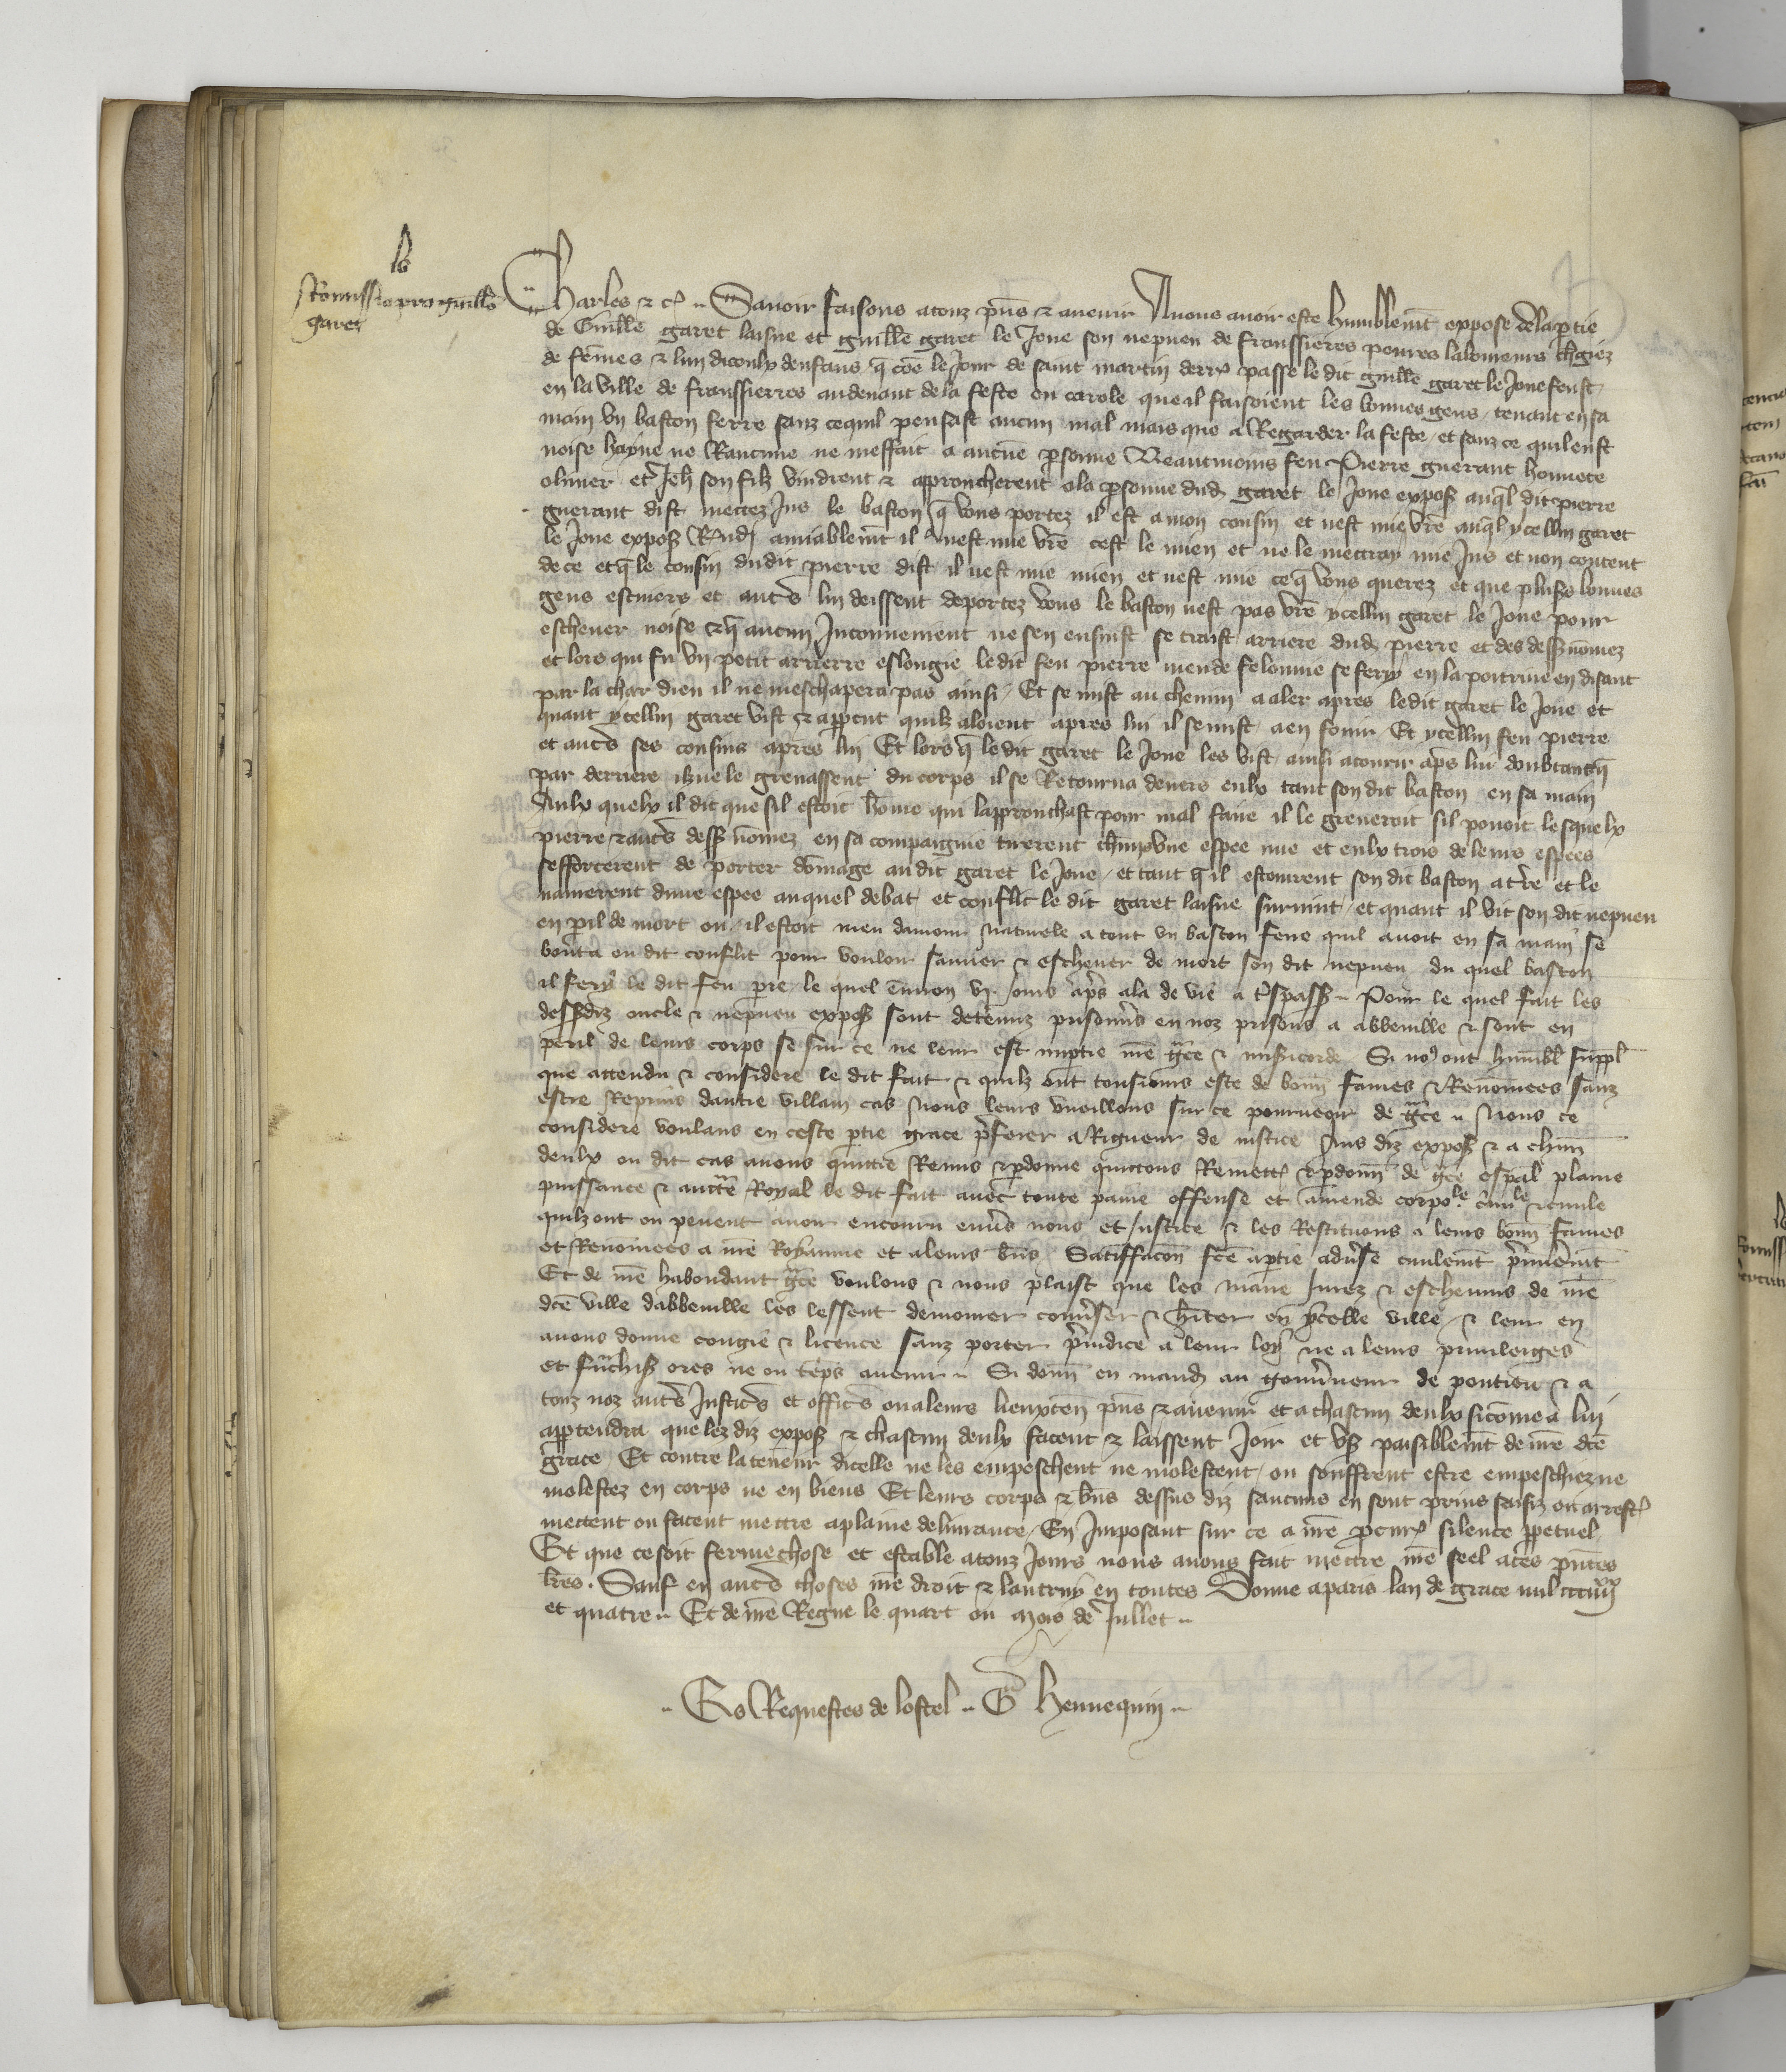 lv
Remissio pro guillo
garet
Charles &c. Savoir faisons a touz pñs & avenir Nous avoir este humblemt expose de la ptie
de Guille garet laisne et guille garet le Jone son nepveu de franssieres povres laboureurs chgiez
de fẽmes & lun diceulx denfans q cõe le Jour de saint martin derr passe le dit guille garet le Jone feust
en la ville de franssierres au devant de la feste ou carole que il faisoient les bonnes gens / tenant en sa
main un baston ferre sanz ce quil pensast aucun mal mais que a Regarder la feste / et sanz ce quil eust
noise hayne ne Rancune ne meffait a aucũe psonne Neantmoins feu Pierre guerant honnete
olivier et Jeh son filz vindrent & approucherent a la psonne dud garet le Jone expos auql dit pierre
guerant dist mettez Jus le baston q vous portez il est a mon cousin et nest mie vre auql ycellui garet
le Jone expos Rndi amiablemt il nest mie vre cest le mien et ne le mettray mie Jus et non content
de ce et q le cousin dudit pierre dist il nest mie mien et nest mie ce q vous querez et que pluss bonnes
gens escuiers et autrs lui deissent deportez vous le baston nest pas vre ycellui garet le Jone pour
eschever noise & q aucun Inconvenient ne sen ensuist se traist arriere dud pierre et des dess nõmez
et lors qui fu un petit arrierre eslongie ledit feu pierre meu de felonnie se fery en la poitrine en disant
par la char dieu il ne meschapera pas ainsi / Et se mist au chemin a aler apres ledit garet le Jone et
quant ycellui garet vist & appcut quilz aloient apres lui il se mist a en fouir Et ycellui feu pierre
et autrs ses cousins apres lui Et lors q ledit garet le Jone les vist ainsi acourir aps lui doubtant q
par derriere ilz ne le grevassent du corps il se Retourna devers eulx tant son dit baston en sa main
Aulx quelx il dit que sil estoit hõme qui lapprouchast pour mal faire il le greveroit sil povoit lesquelx
pierre & autrs dess nõmez en sa compaignie tirerent chun une espee nue et eulx trois de leurs espees
sefforcerent de porter dõmage audit garet le Jone / et tant q il escourrent son dit baston a tre et le
navrerent dune espee auquel debat et conflit le dit garet laisne survint / et quant il vit son dit nepveu
en pil de mort ou il estoit meu damour naturele a tout un baston ferre quil avoit en sa main se
bouta ou dit conflit pour vouloir sauver & eschever de mort son dit nepveu du quel baston
il fery le dit feu pre le quel envron vj jours aps ala de vie a trspass Pour le quel fait les
dessdiz oncle & nepveu expos sont detenuz prisonns en noz prisons a abbeville & sont en
peril de leurs corps se sur ce ne leur est imptie nre gce & misicorde Si nous ont humbl suppl
que attendu & considere le dit fait & quilz ont tousjours este de bonn fames & Renõmees sanz
estre Reprins dautre villain cas nous leurs vueillons sur ce pourveoir de gce Nous ce
considere voulans en ceste ptie grace prferer a Rigueur de justice Aus diz expos & a chun
deulx ou dit cas avons quittie Remis & pdonne quictons Remett & pdonn de gce espal plaine
puissance & auctte Royal le dit fait avec toute paine offense et amende corpole crimle & civile
quilz ont ou pevent avoir encouru envers nous et justice & les Restituons a leurs bonn fames
et Renõmees a nre Royaume et a leurs bns Satiffacon fte a ptie adverse civilemt premieremt
Et de nre habondant gce voulons & nous plaist que les maire jurez & eschevins de nre
dte ville dabbeville les lessent demourer converser & hiter en ycelle ville & leur en
avons donne congie & licence sanz porter prejudice a leur loy ne a leurs privileiges
et frnchiss ores ne ou temps avenir Si donn en mand au gouvrneur de pontieu & a
touz noz autrs Justicrs et officrs ou a leurs lieuxten pns & avenir et a chascun deulx si cõme a lui
apptendra que lez diz expos & chascun deulx facent & laissent Joir et us paisiblemt de nre dte
grace / Et contre la teneur dicelle ne les empeschent ne molestent / ou souffrent estre empeschiez ne
molestez en corps ne en biens Et leurs corps & bns dessus diz saucuns en sont prins saisiz ou arrest
mettent ou facent mettre a plaine delivrance / En Imposant sur ce a nre pcur silence ppetuel
Et que ce soit ferme chose et estable a touz Jours nous avons fait mettre nre seel a ces pntes
lres. Sauf en autrs choses nre droit & lautruy en toutes Donne a paris lan de grace mil ccciiijxx
et quatre Et de nre Regne le quart ou mois de Jullet
Es Requestes de lostel G Hennequin